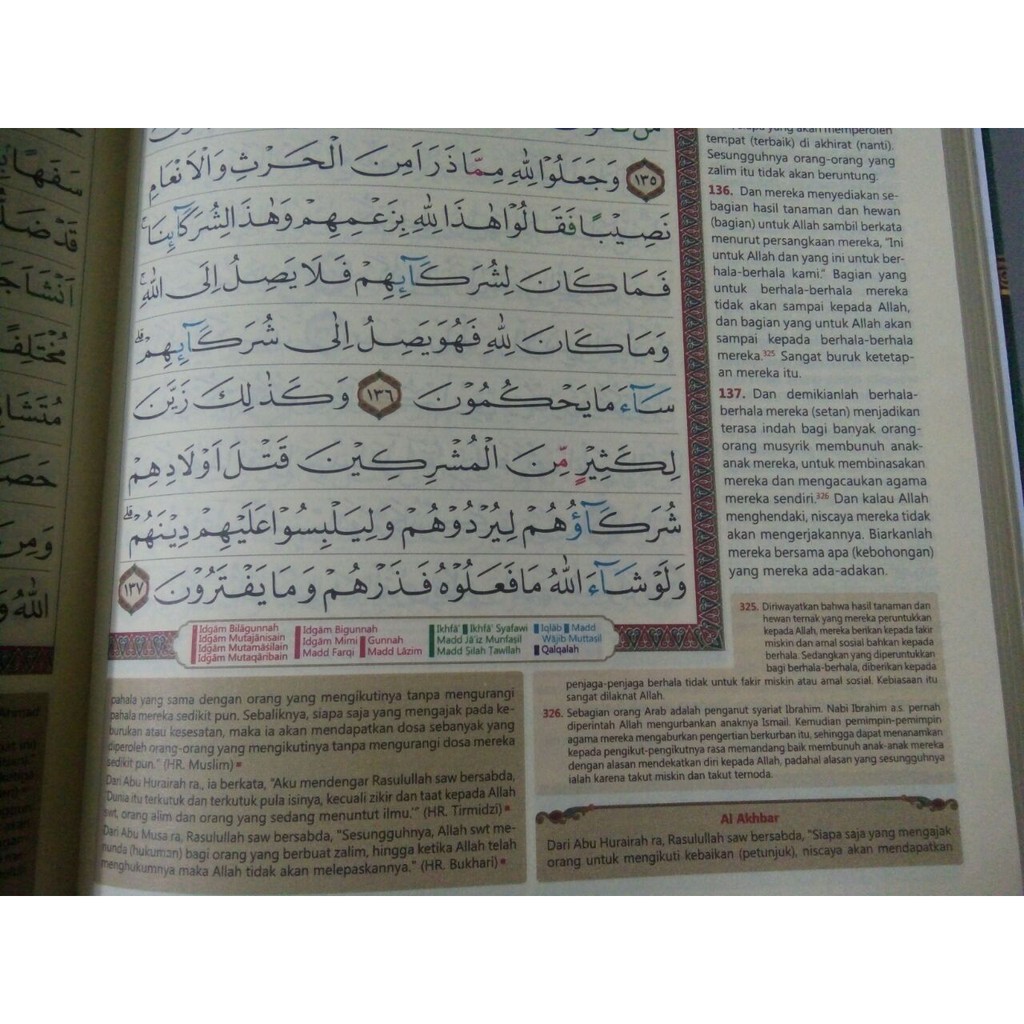 سَفَهًا
قَدْ ضَلُّوْا
اَنْشَاَ
مُّخْتَلِفًا
مُتَشَابِهًا
وَمِنَ
اللّٰهُ
۝١٣٥ وَجَعَلُوْا لِلّٰهِ مِمَّا ذَرَاَ مِنَ الْحَرْثِ وَالْاَنْعَامِ
نَصِيْبًا فَقَالُوْا هٰذَا لِلّٰهِ بِزَعْمِهِمْ وَهٰذَا لِشُرَكَاۤىِٕنَاۚ
فَمَا كَانَ لِشُرَكَاۤىِٕهِمْ فَلَا يَصِلُ اِلَى اللّٰهِۚ
وَمَا كَانَ لِلّٰهِ فَهُوَ يَصِلُ اِلٰى شُرَكَاۤىِٕهِمْۗ
سَاۤءَ مَا يَحْكُمُوْنَ ۝١٣٦ وَكَذٰلِكَ زَيَّنَ
لِكَثِيْرٍ مِّنَ الْمُشْرِكِيْنَ قَتْلَ اَوْلَادِهِمْ
شُرَكَاۤؤُهُمْ لِيُرْدُوْهُمْ وَلِيَلْبِسُوْا عَلَيْهِمْ دِيْنَهُمْۗ
وَلَوْ شَاۤءَ اللّٰهُ مَا فَعَلُوْهُ فَذَرْهُمْ وَمَا يَفْتَرُوْنَ ۝١٣٧
yang akan memperoleh
tempat (terbaik) di akhirat (nanti).
Sesungguhnya orang-orang yang
zalim itu tidak akan beruntung.
136. Dan mereka menyediakan se-
bagian hasil tanaman dan hewan
(bagian) untuk Allah sambil berkata
menurut persangkaan mereka, "Ini
untuk Allah dan yang ini untuk ber-
hala-berhala kami." Bagian yang
untuk berhala-berhala mereka
tidak akan sampai kepada Allah,
dan bagian yang untuk Allah akan
sampai kepada berhala-berhala
mereka.325 Sangat buruk ketetap-
an mereka itu.
137. Dan demikianlah berhala-
berhala mereka (setan) menjadikan
terasa indah bagi banyak orang-
orang musyrik membunuh anak-
anak mereka, untuk membinasakan
mereka dan mengacaukan agama
mereka sendiri.326 Dan kalau Allah
menghendaki, niscaya mereka tidak
akan mengerjakannya. Biarkanlah
mereka bersama apa (kebohongan)
yang mereka ada-adakan.
Idgām Bilāgunnah
Idgām Mutajānisain
Idgām Mutamāṡilain
Idgām Mutaqāribain
Idgām Bigunnah
Idgām Mimi Gunnah
Madd Farqi Madd Lāzim
Ikhfā' Ikhfā' Syafawi
Madd Jā'iz Munfaṣil
Madd Ṣilah Ṭawīlah
Iqlāb Madd
Wājib Muttaṣil
Qalqalah
325. Diriwayatkan bahwa hasil tanaman dan
hewan ternak yang mereka peruntukkan
kepada Allah, mereka berikan kepada fakir
miskin dan amal sosial bahkan kepada
berhala. Sedangkan yang diperuntukkan
bagi berhala-berhala, diberikan kepada
penjaga-penjaga berhala tidak untuk fakir miskin atau amal sosial. Kebiasaan itu
sangat dilaknat Allah.
326. Sebagian orang Arab adalah penganut syariat Ibrahim. Nabi Ibrahim a.s. pernah
diperintah Allah mengurbankan anaknya Ismail. Kemudian pemimpin-pemimpin
agama mereka mengaburkan pengertian berkurban itu, sehingga dapat menanamkan
kepada pengikut-pengikutnya rasa memandang baik membunuh anak-anak mereka
dengan alasan mendekatkan diri kepada Allah, padahal alasan yang sesungguhnya
ialah karena takut miskin dan takut ternoda.
Al Akhbar
Dari Abu Hurairah ra, Rasulullah saw bersabda, "Siapa saja yang mengajak
orang untuk mengikuti kebaikan (petunjuk), niscaya akan mendapatkan
pahala yang sama dengan orang yang mengikutinya tanpa mengurangi
pahala mereka sedikit pun. Sebaliknya, siapa saja yang mengajak pada ke-
burukan atau kesesatan, maka ia akan mendapatkan dosa sebanyak yang
diperoleh orang-orang yang mengikutinya tanpa mengurangi dosa mereka
sedikit pun." (HR. Muslim)
Dari Abu Hurairah ra., ia berkata, "Aku mendengar Rasulullah saw bersabda,
'Dunia itu terkutuk dan terkutuk pula isinya, kecuali zikir dan taat kepada Allah
swt, orang alim dan orang yang sedang menuntut ilmu.'" (HR. Tirmidzi)
Dari Abu Musa ra, Rasulullah saw bersabda, "Sesungguhnya, Allah swt me-
nunda (hukuman) bagi orang yang berbuat zalim, hingga ketika Allah telah
menghukumnya maka Allah tidak akan melepaskannya." (HR. Bukhari)